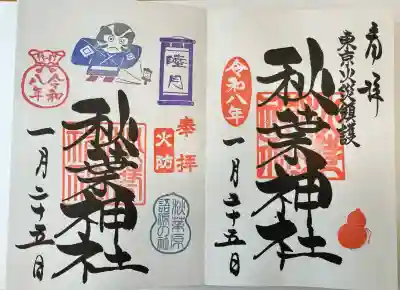 奉拝
東京火災鎮護
秋葉神社
令和八年
一月二十五日
睦月
奉拝
火防
秋葉原
語源の社
秋葉神社
令和
八年
一月二十五日